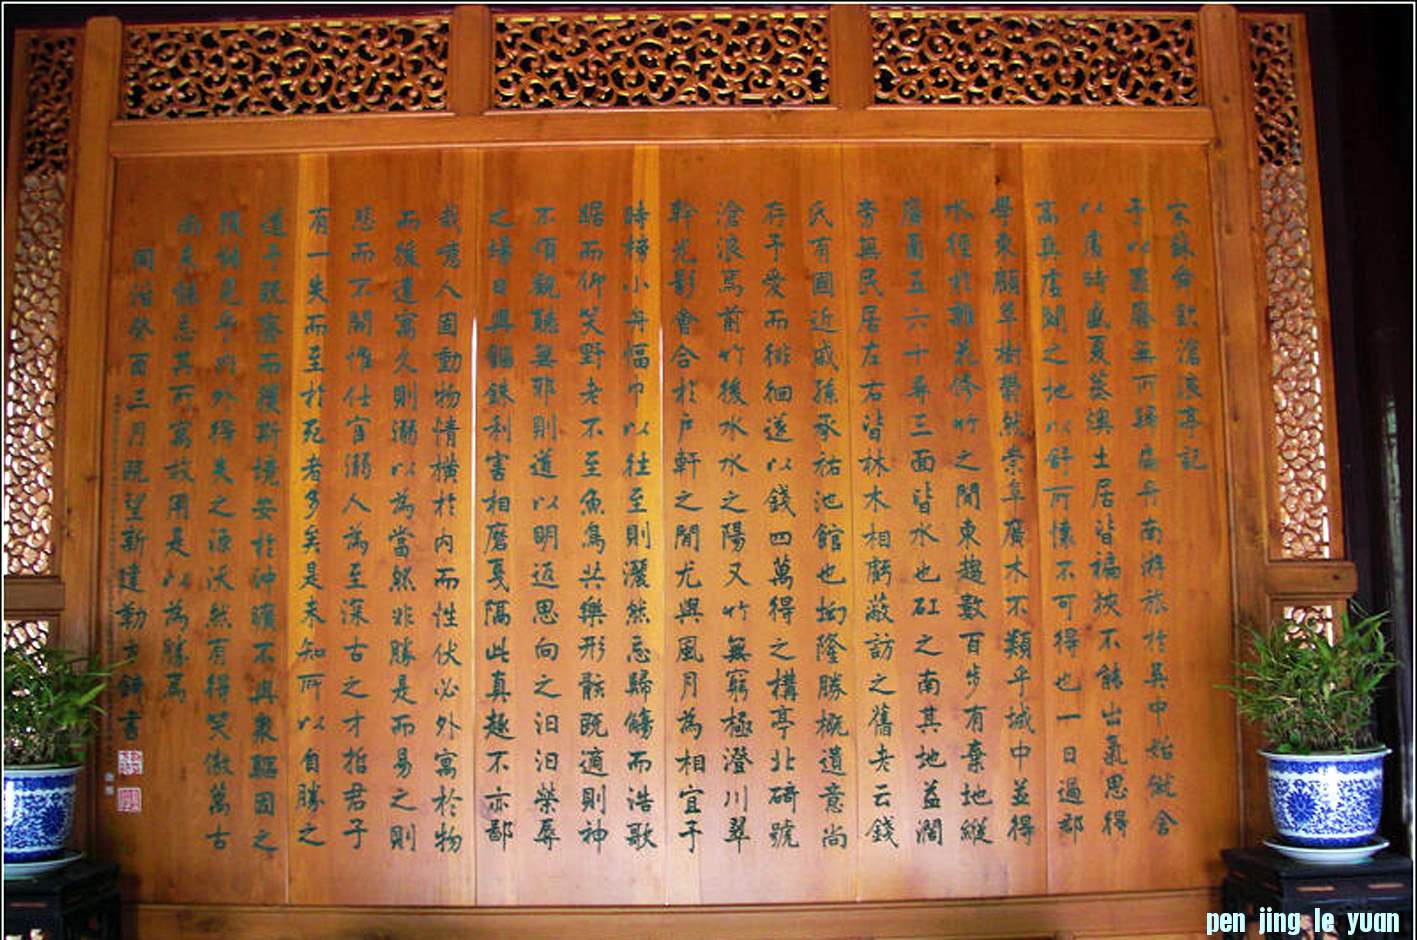 宋蘇舜欽滄浪亭記
予以罪廢無所歸扁舟南游旅於吳中始僦舍
以處時盛夏蒸燠土居皆褊狹不能出氣思得
高爽虛闢之地以舒所懷不可得也一日過郡
學東顧草樹鬱然崇阜廣水不類乎城中並得
微徑於雜花修竹之間東趨數百步有棄地縱
廣函五六十尋三面皆水也矼之南其地益闊
旁無民居左右皆林木相虧蔽訪之舊老云錢
氏有國近戚孫承祐池館也坳隆勝概遺意尚
存予愛而徘徊遂以錢四萬得之構亭北碕號
滄浪焉前竹後水水之陽又竹無窮極澄川翠
幹光影會合於戶軒之間尤與風月為相宜予
時榜小舟幅巾以往至則灑然忘歸觴而浩歌
踞而仰笑野老不至魚鳥共樂形骸既適則神
不煩觀聽無邪則道以明返思向之汩汩榮辱
之場日與錙銖利害相磨戛隔此真趣不亦鄙
哉噫人固動物情橫於內而性伏必外寓於物
而後遣寓久則溺以為當然非勝是而易之則
悲而不開惟仕宦溺人為至深古之才哲君子
有一失而至於死者多矣是未知所以自勝之
道予既廢而獲斯境安於沖曠不與眾驅因之
復能見乎內外得失之源沃然有得笑傲萬古
尚未能忘其所寓故用是以為勝焉
同治癸酉三月既望新建勒方錡書
pen jing le yuan